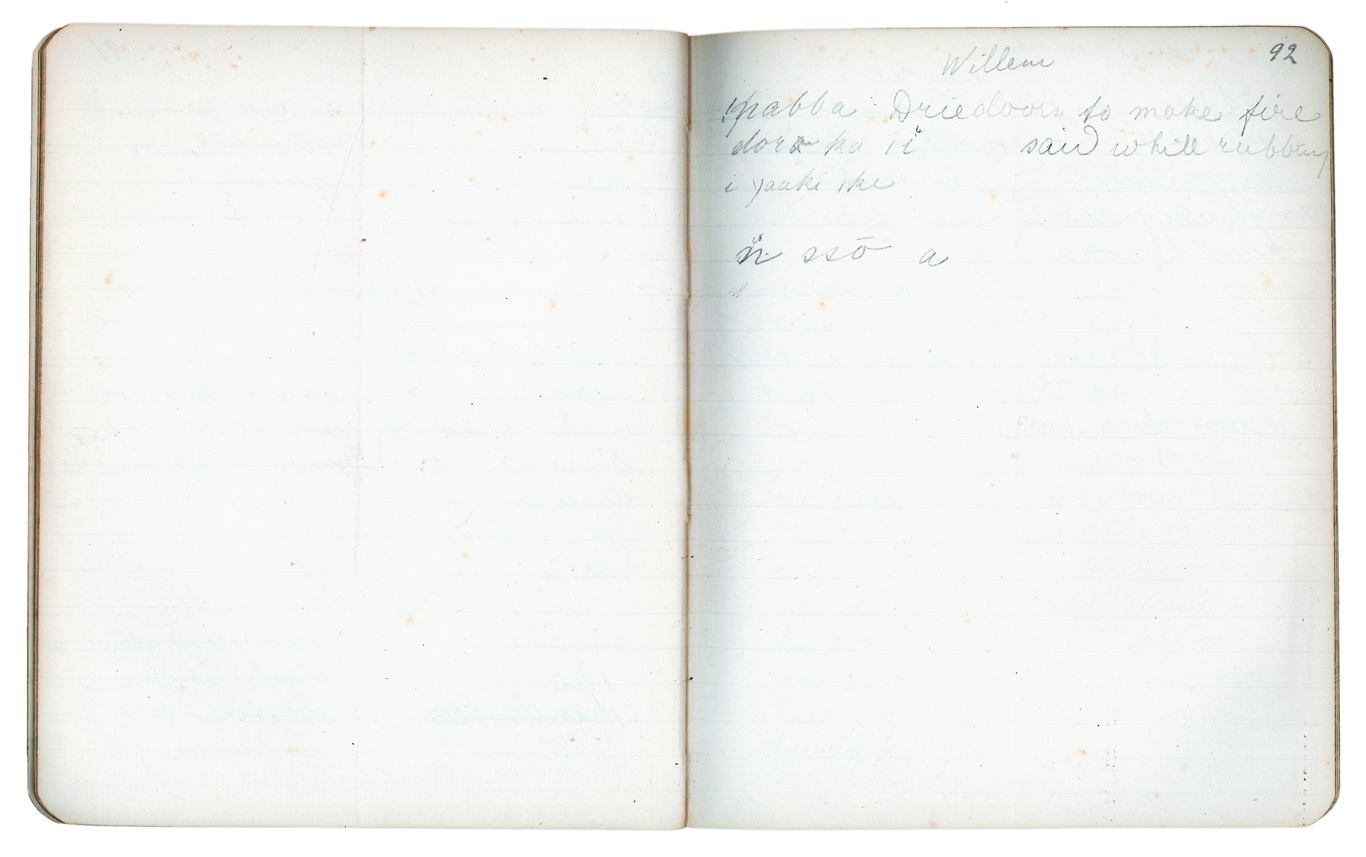 Willem 92
!pabba Driedoorn to make fire
ka said while rubbing
i yaaki ike
ssō a